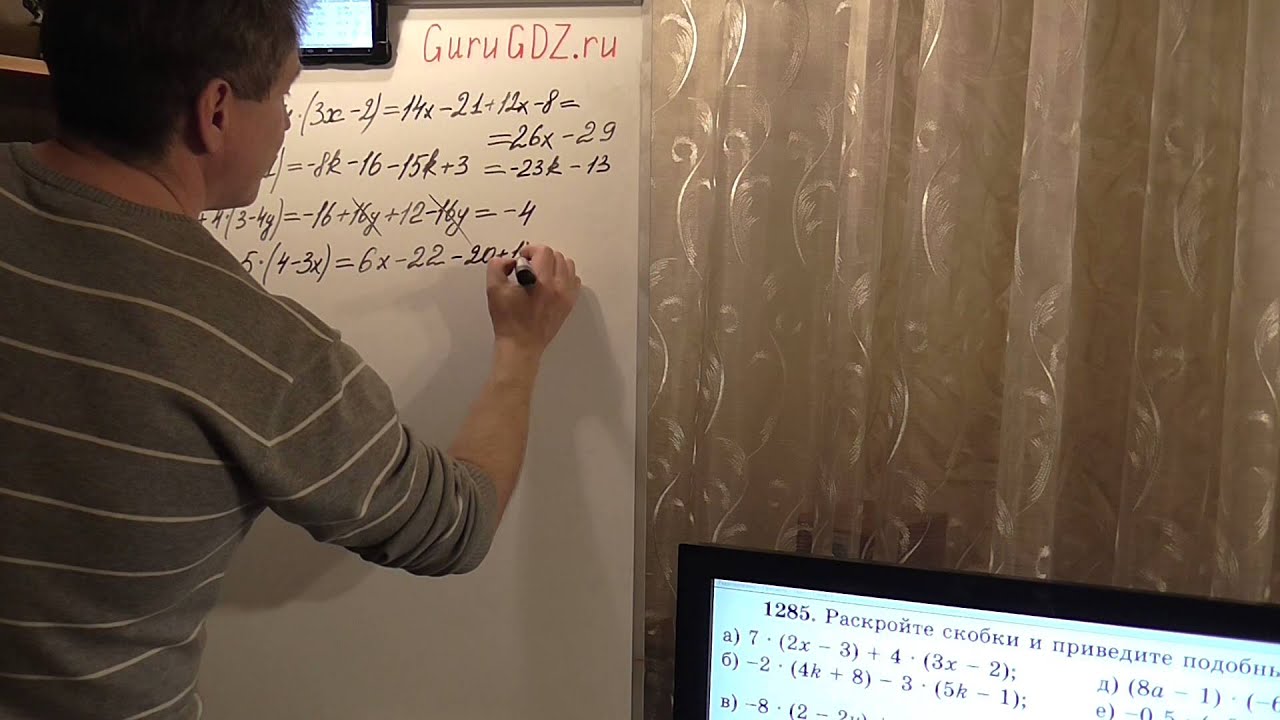 GuruGDZ.ru
·(3x-2)=14x-21+12x-8=
=26x-29
)=-8k-16-15k+3 =-23k-13
+4·(3-4y)=-16+16y+12-16y=-4
5·(4-3x)=6x-22-20+1
1285. Раскройте скобки и приведите подобны
а) 7 · (2x − 3) + 4 · (3x − 2);
б) −2 · (4k + 8) − 3 · (5k − 1);
в) −8 · (2 − 2y)
д) (8a − 1) · (−6
е) −0,5